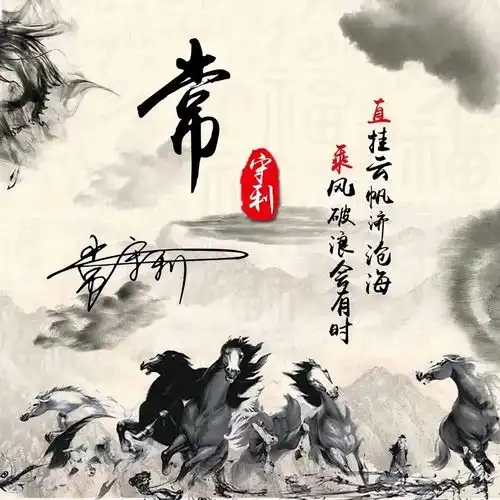 常
守利
直挂云帆济沧海
乘风破浪会有时
常守利